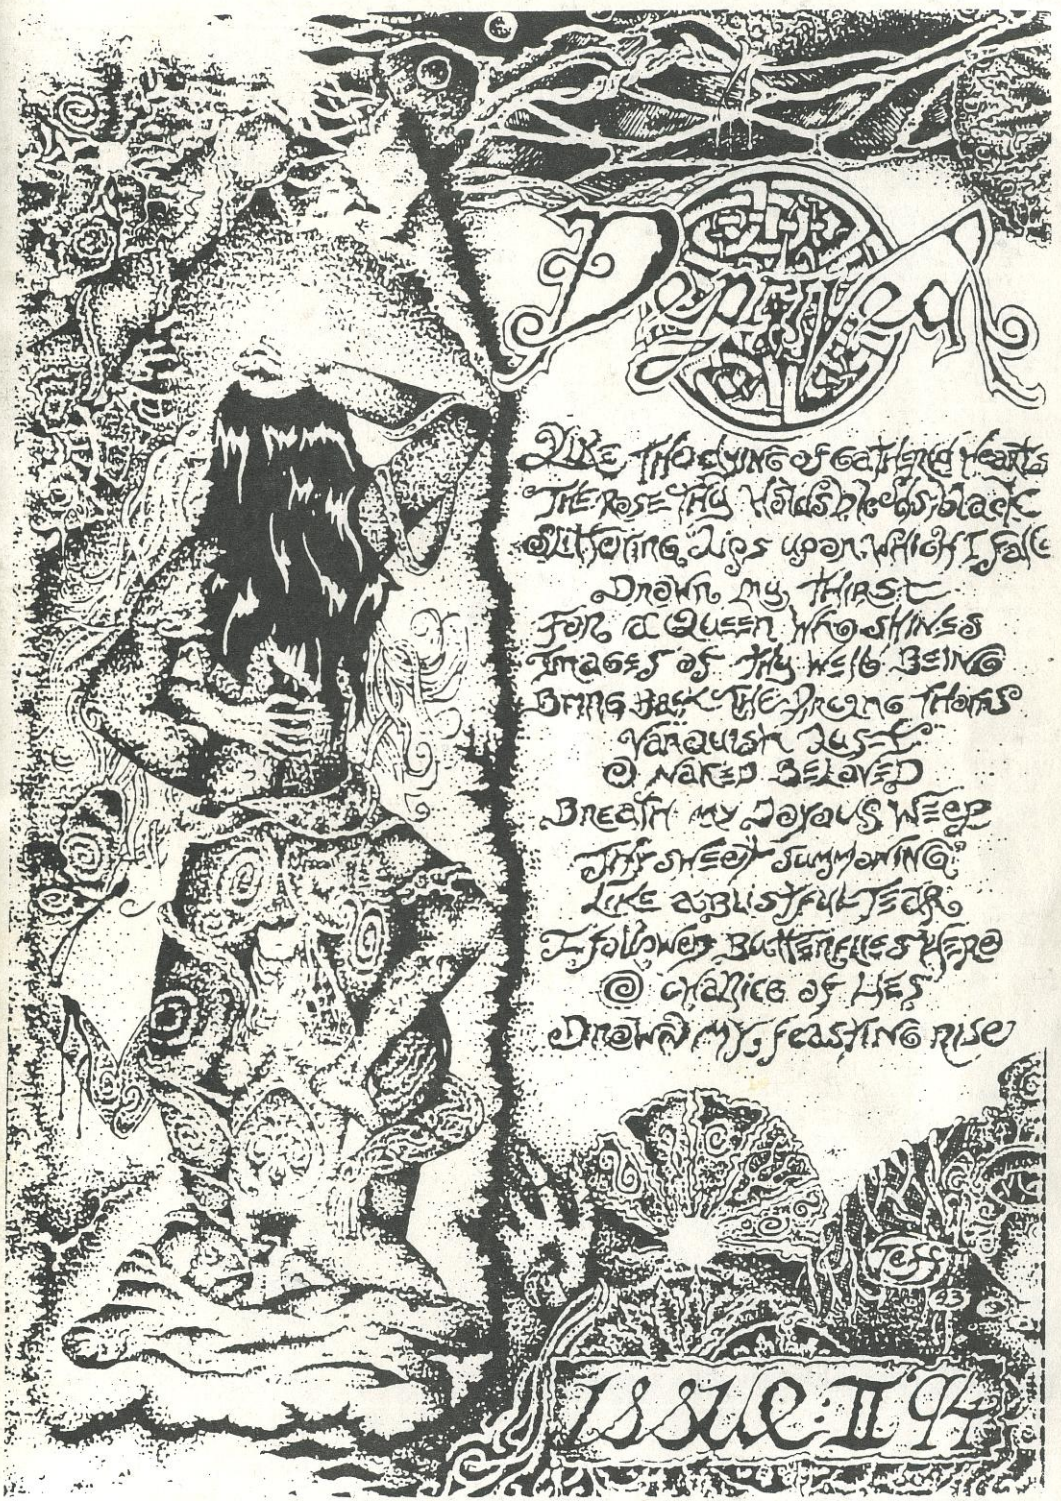 Deprived
Like the dying of gathered hearts
The rose thy holds bleeds black
Slithering lips upon which I fall
Drown my thirst
For a Queen who shines
Images of thy well being
Bring back the piercing thorns
Vanquish lust
O naked beloved
Breath my joyous weep
Thy sweet summoning
Like a blistful tear
I followed butterflies here
O chalice of lies
Drown my feasting rise
Issue: II '94